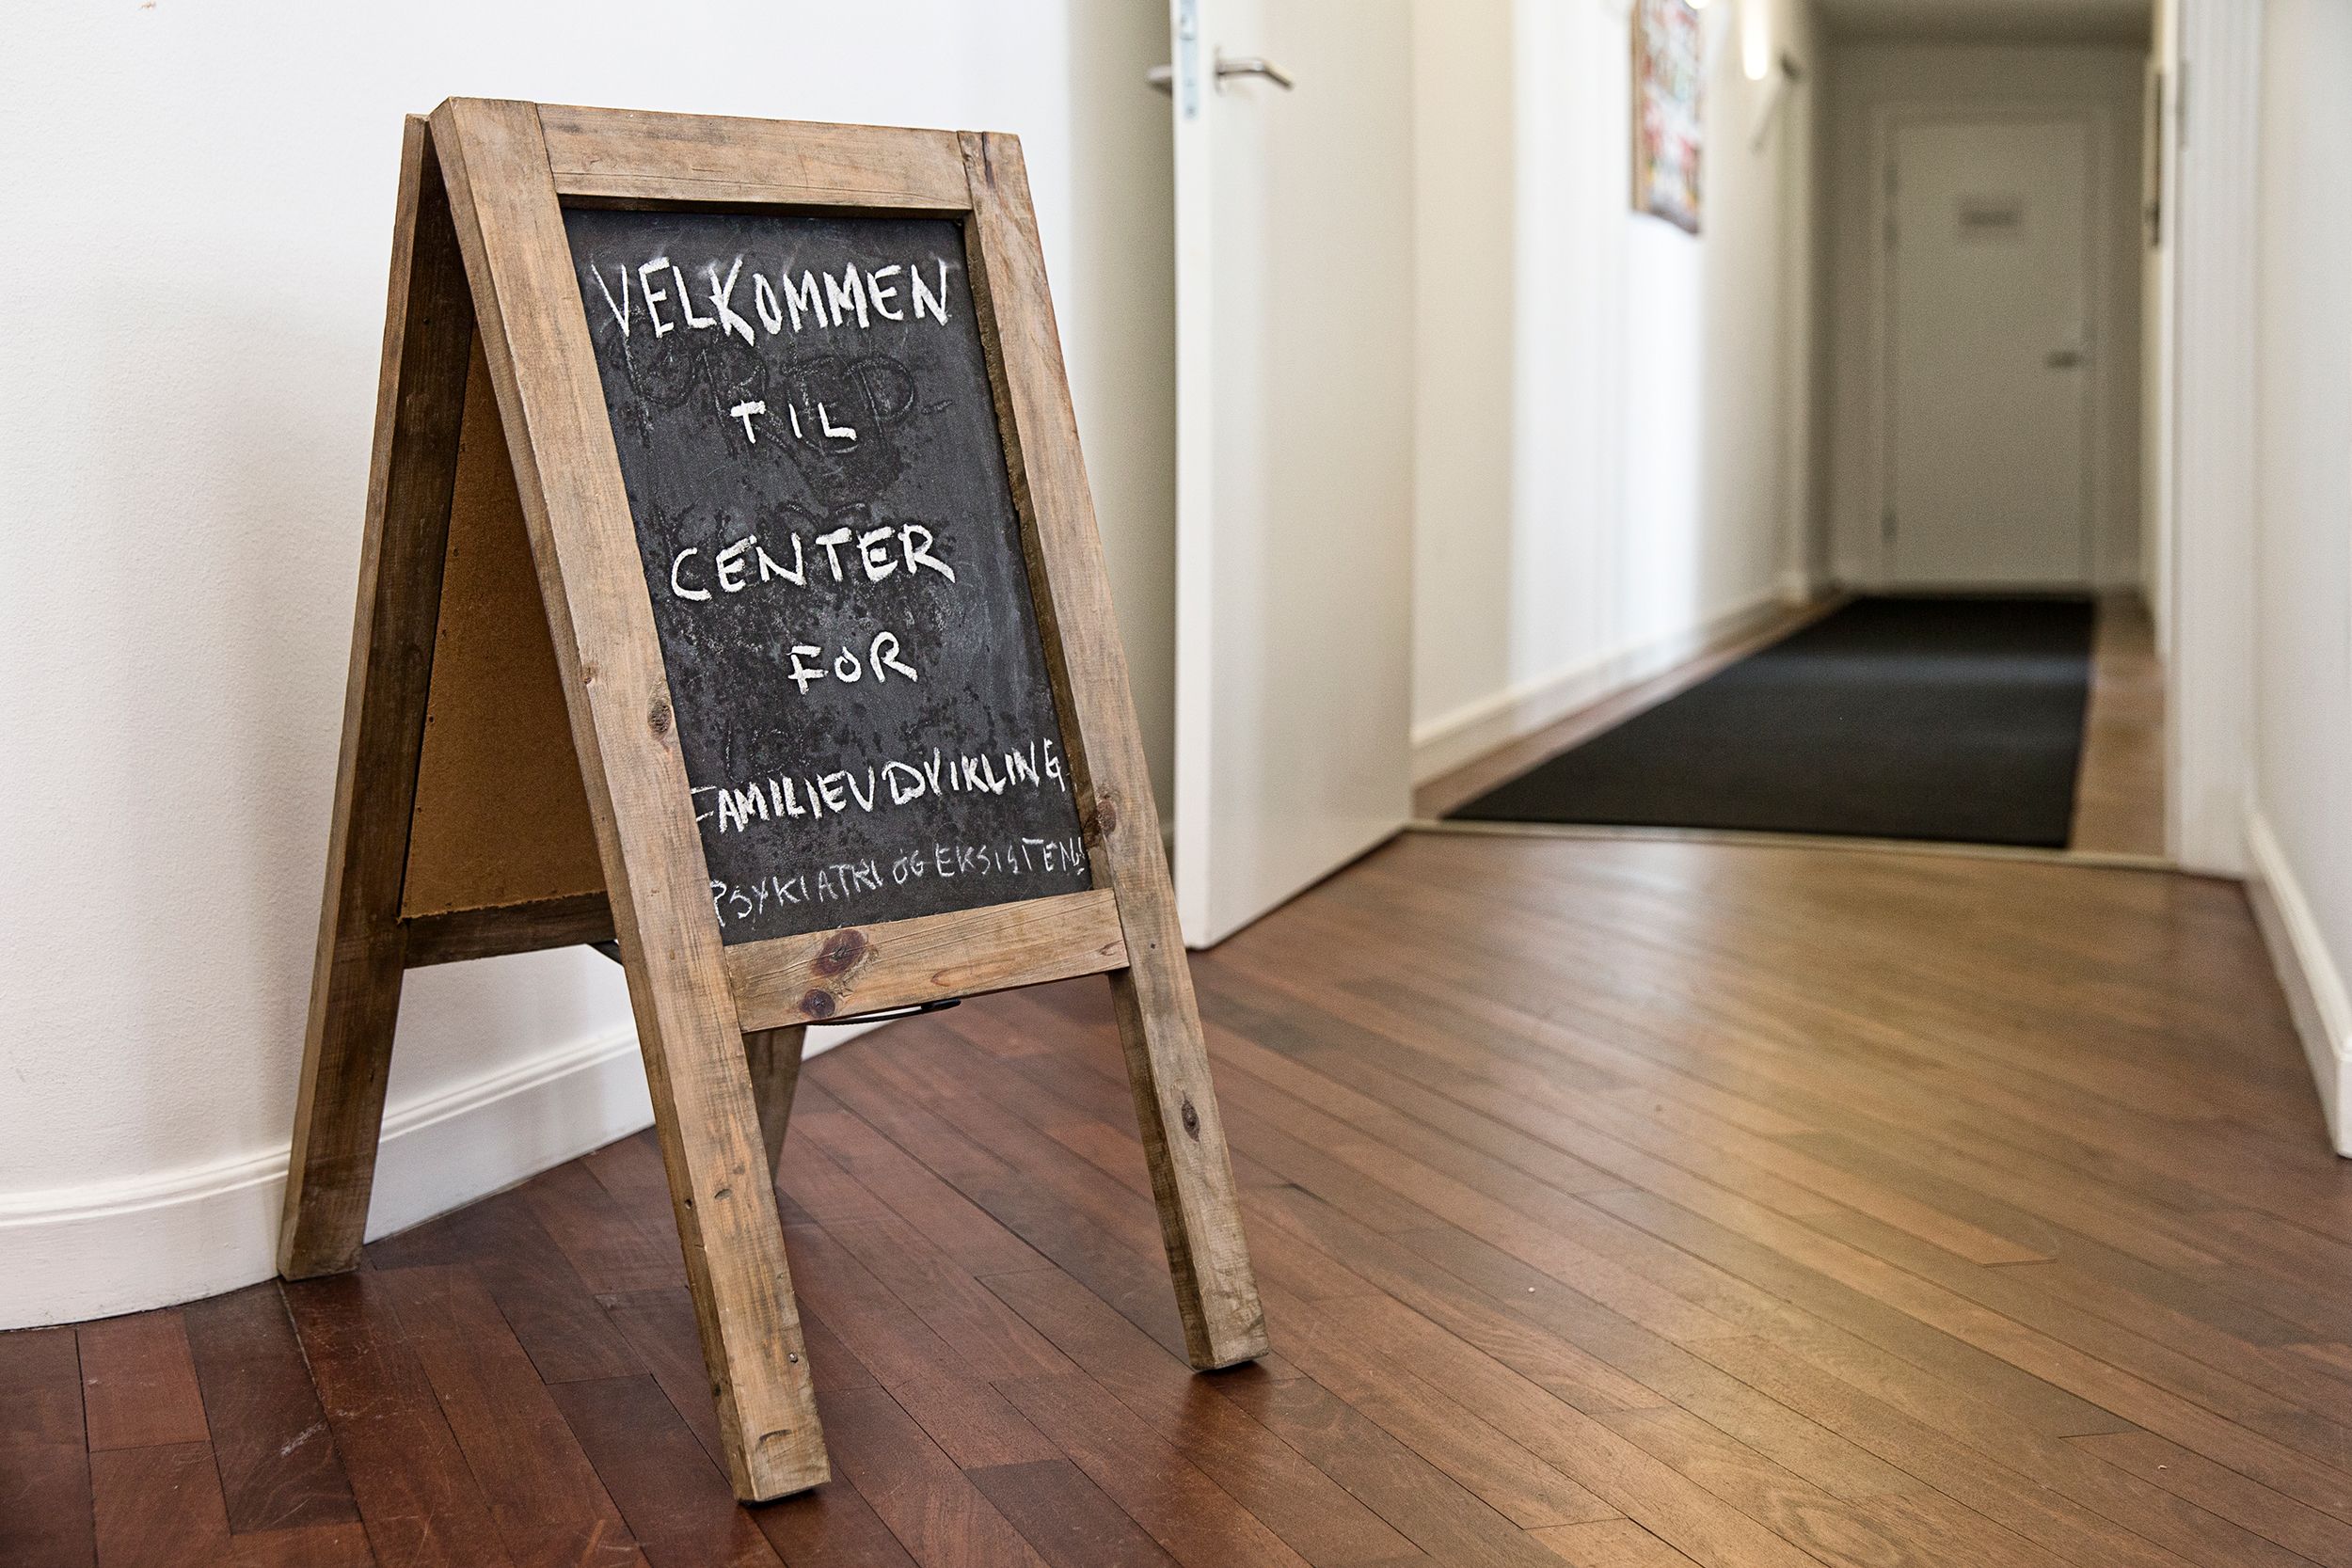 VELKOMMEN
TIL
CENTER
FOR
FAMILIEUDVIKLING
PSYKIATRI OG EKSISTENS